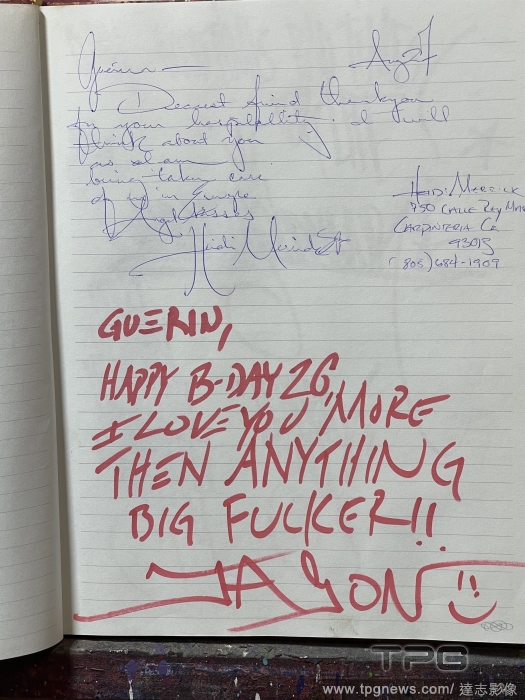 Guerin —
Aug 27
Dearest friend thankyou
for your hospitality. I will
think about you
as when
being taken care
of in Europe
Angel Kisses
Heidi Merrick
HEIDI MERRICK
950 CALLE REY MAR
CARPINTERIA CA
93013
(805) 684-1909
GUERIN,
HAPPY B-DAY 26,
I LOVE YOU MORE
THEN ANYTHING
BIG FUCKER!!
JASON
TPG
www.tpgnews.com/達志影像